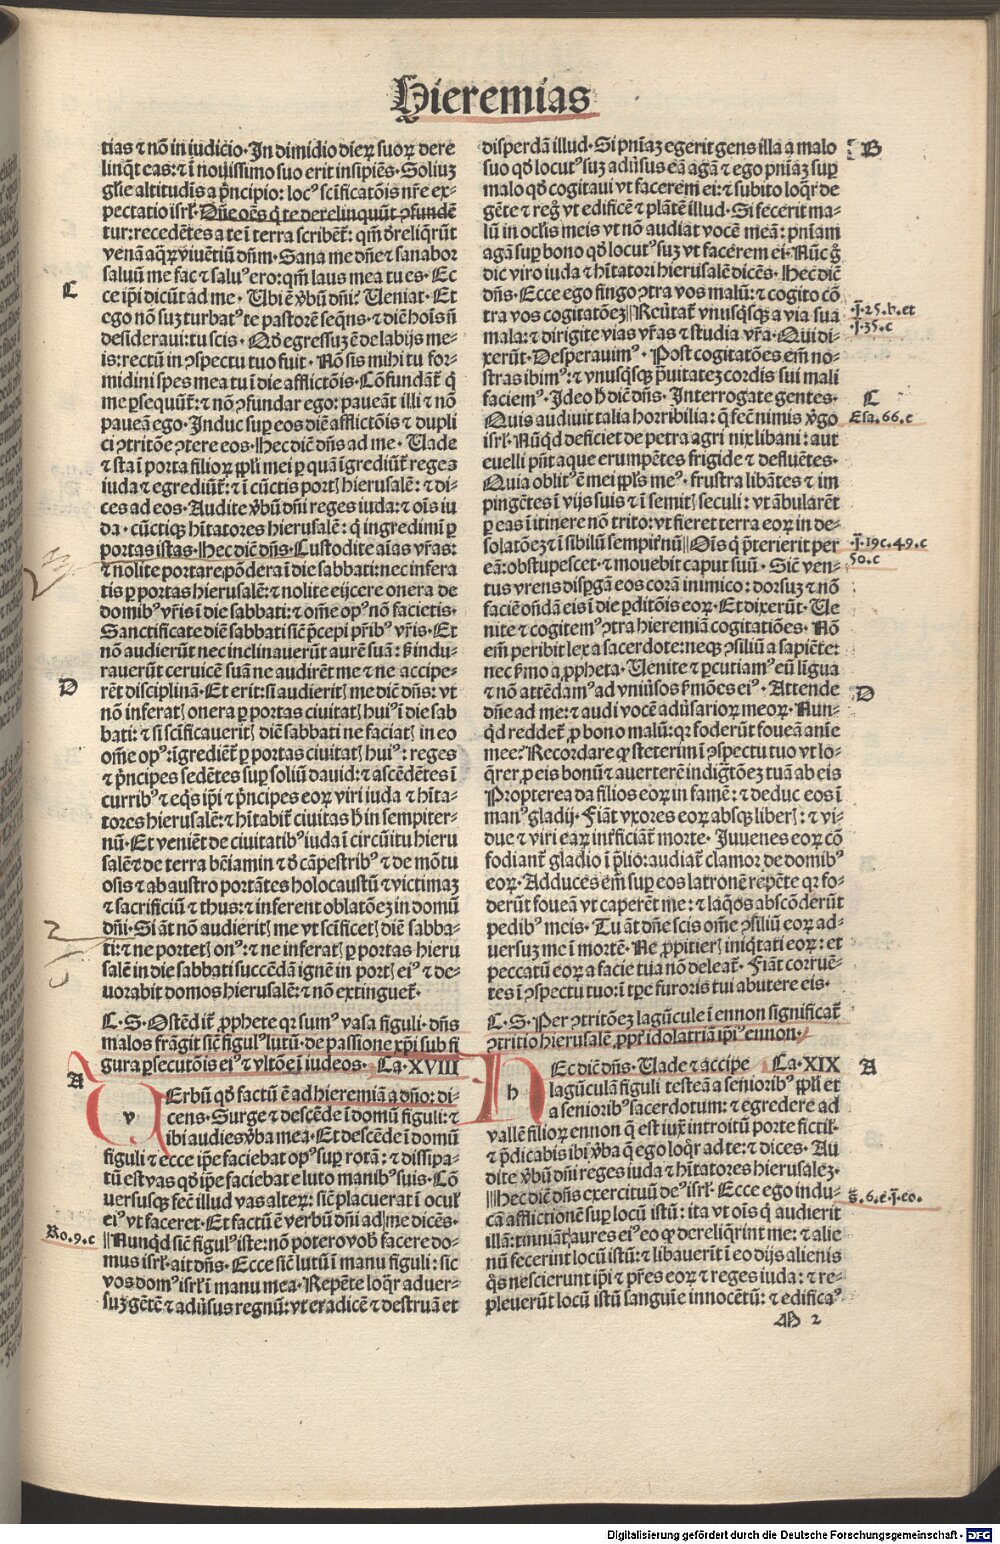 Hieremias
tias ⁊ nō in iudicio. In dimidio dieꝝ suoꝝ dere
linq̄t eas: ⁊ ī nouissimo suo erit insipiēs. Soliuʒ
gl̄ie altitudīs a p̄ncipio: locꝰ sc̄ificatōis nr̄e ex-
pectatio isrl̓. Dn̄e oēs q̓ te derelinquūt ꝯfundē
tur: recedētes a te ī terra scribēt̄: qm̄ d̓reliq̄rūt
venā aq̄ꝝ viuētiū dn̄m. Sana me dn̄e ⁊ sanabor
saluū me fac ⁊ saluꝰ ero: qm̄ laus mea tu es. Ec
C
ce ip̄i dicūt ad me. Ubi ē v̓bū dn̄i? Ueniat. Et
ego nō suʒ turbatꝰ te pastorē seq̄ns: ⁊ diē hoīs n̄
desideraui: tu scis. Qd̓ egressuʒ ē de labijs me-
is: rectū in ꝯspectu tuo fuit. Nō sis mihi tu for-
midini spes mea tu ī die afflictōis. Cōfundāt̄ q̓
me ꝑsequūt̄: ⁊ nō ꝯfundar ego: paueāt illi ⁊ nō
paueā ego. Induc suꝑ eos diē afflictōis ⁊ dupli
ci ꝯtritōe ꝯtere eos. Hec dic̄ dn̄s ad me. Uade
⁊ sta ī porta filioꝝ ppl̓i mei ꝑ quā īgrediūt̄ reges
iuda ⁊ egrediūt̄: ⁊ ī cūctis portꝭ hierusalē: ⁊ di-
ces ad eos. Audite v̓bū dn̄i reges iuda: ⁊ oīs iu
da. cūctiqꝫ hītatores hierusalē: q̓ ingredimī ꝑ
portas istas. Hec dic̄ dn̄s. Custodite aīas vr̄as:
⁊ nolite portare pōdera ī die sabbati: nec infera
tis ꝑ portas hierusalē: ⁊ nolite eijcere onera de
domibꝰ vr̄is ī die sabbati: ⁊ om̄e opꝰ nō facietis.
Sanctificate diē sabbati sic̄ p̄cepi pr̄ibꝰ vr̄is. Et
nō audierūt nec inclinauerūt aurē suā: s̓ indu-
rauerūt ceruicē suā ne audirēt me ⁊ ne accipe-
D
rēt disciplinā. Et erit: si audieritꝭ me dic̄ dn̄s: vt
nō inferatꝭ onera ꝑ portas ciuitatꝭ huiꝰ ī die sab
bati: ⁊ si sc̄ificaueritꝭ diē sabbati ne faciatꝭ in eo
om̄e opꝰ: īgrediēt̄ ꝑ portas ciuitatꝭ huiꝰ: reges
⁊ p̄ncipes sedētes suꝑ soliū dauid: ⁊ ascēdētes ī
curribꝰ ⁊ eq̓s ip̄i ⁊ p̄ncipes eoꝝ viri iuda ⁊ hīta-
tores hierusalē: ⁊ hītabit̄ ciuitas h̓ in sempiter-
nū. Et veniēt de ciuitatibꝰ iuda ī circūitu hieru
salē ⁊ de terra bēiamin ⁊ d̓ cāpestribꝰ ⁊ de mōtu
osis ⁊ ab austro portātes holocaustū ⁊ victimaʒ
⁊ sacrificiū ⁊ thus: ⁊ inferent oblatōeʒ in domū
dn̄i. Si āt nō audieritꝭ me vt sc̄ificetꝭ diē sabba-
ti: ⁊ ne portetꝭ onꝰ: ⁊ ne inferatꝭ ꝑ portas hieru
salē in die sabbati succēdā ignē in portꝭ eiꝰ ⁊ de-
uorabit domos hierusalē: ⁊ nō extinguet̄.
C. S. Ostēdit̄ ꝓphete qꝛ sumꝰ vasa figuli. dn̄s
malos frāgit sic̄ figulꝰ lutū. de passione xp̄i sub fi
gura ꝑsecutōis eiꝰ ⁊ vltōe ī iudeos. Ca. XVIII
A
v
Erbū qd̓ factū ē ad hieremiā a dn̄o: di-
cens. Surge ⁊ descēde ī domū figuli: ⁊
ibi audies v̓ba mea. Et descēde ī domū
figuli ⁊ ecce ip̄e faciebat opꝰ suꝑ rotā: ⁊ dissipa-
tū est vas qd̓ ip̄e faciebat e luto manibꝰ suis. Cō
uersusqꝫ fec̄ illud vas alteꝝ: sic̄ placuerat ī ocul̓
eiꝰ vt faceret. Et factū ē verbū dn̄i ad me dicēs.
Ro. 9. c
Nunqd̓ sic̄ figulꝰ iste: nō potero vob̓ facere do-
mus isrl̓. ait dn̄s. Ecce sic̄ lutū ī manu figuli: sic
vos domꝰ isrl̓ ī manu mea. Repēte loq̓r aduer-
suʒ gētē ⁊ adu̓sus regnū: vt eradicē ⁊ destruā et
disperdā illud. Si pn̄iaʒ egerit gens illa a malo
B
suo qd̓ locutꝰ suʒ adu̓sus eā agā ⁊ ego pn̄iaʒ suꝑ
malo qd̓ cogitaui vt facerem ei: ⁊ subito loq̓r de
gēte ⁊ regͦ vt edificē ⁊ plātē illud. Si fecerit ma-
lū in oclis̓ meis vt nō audiat vocē meā: pn̄iam
agā suꝑ bono qd̓ locutꝰ suʒ vt facerem ei. Nūc gͦ
dic viro iuda ⁊ hītatori hierusalē dicēs. Hec dic̄
dn̄s. Ecce ego fingo ꝯtra vos malū: ⁊ cogito cō
tra vos cogitatōeʒ Reu̓tat̄ vnusq̓sqꝫ a via sua
J. 25. b. et
J. 35. c
mala: ⁊ dirigite vias vr̄as ⁊ studia vr̄a. Qui di-
xerūt. Desperauimꝰ. Post cogitatōes em̄ no-
stras ibimꝰ: ⁊ vnusq̓sqꝫ p̄uitateʒ cordis sui mali
faciemꝰ. Ideo h̓ dic̄ dn̄s. Interrogate gentes.
C
Quis audiuit talia horribilia: q̄ fec̄ nimis v̓go
Esa. 66. c
isrl̓. Nūqd̓ deficiet de petra agri nix libani: aut
euelli pn̄t aque erumpētes frigide ⁊ defluētes.
Quia oblitꝰ ē mei ppl̓s meꝰ. frustra libātes ⁊ im
pingētes ī vijs suis ⁊ ī semitꝭ seculi: vt ābularēt
ꝑ eas ī itinere nō trito: vt fieret terra eoꝝ in de-
solatōeʒ ⁊ ī sibilū sempit̓nū Oīs q̓ p̄terierit per
J. 19 c. 49. c
50. c
eā: obstupescet ⁊ mouebit caput suū. Sic̄ ven-
tus vrens disꝑgā eos corā inimico: dorsuʒ ⁊ nō
faciē on̄dā eis ī die ꝑditōis eoꝝ. Et dixerūt. Ue
nite ⁊ cogitemꝰ ꝯtra hieremiā cogitatiōes. Nō
em̄ peribit lex a sacerdote: neqꝫ ꝯsiliū a sapiēte:
nec s̓mo a ꝓpheta. Uenite ⁊ ꝑcutiamꝰ eū līgua
⁊ nō attēdamꝰ ad vniu̓sos s̓mōes eiꝰ. Attende
D
dn̄e ad me: ⁊ audi vocē adu̓sarioꝝ meoꝝ. Nun-
qd̓ reddet̄ ꝓ bono malū: qꝛ foderūt foueā aīe
mee? Recordare ꝙ steterim ī ꝯspectu tuo vt lo-
q̓rer ꝓ eis bonū ⁊ auerterē indig̓tōeʒ tuā ab eis
Propterea da filios eoꝝ in famē: ⁊ deduc eos ī
manꝰ gladij. Fiāt vxores eoꝝ absqꝫ liberꝭ: ⁊ vi-
due ⁊ viri eaꝝ int̓ficiant̄ morte. Juuenes eoꝝ cō
fodiant̄ gladio ī p̄lio: audiat̄ clamor de domibꝰ
eoꝝ. Adduces em̄ suꝑ eos latronē repēte qꝛ fo-
derūt foueā vt caperēt me: ⁊ laq̓os abscōderūt
pedibꝰ meis. Tu āt dn̄e scis om̄e ꝯsiliū eoꝝ ad-
versuʒ me ī mortē. Ne ꝓpitierꝭ iniq̓tati eoꝝ: et
peccatū eoꝝ a facie tua nō deleat̄. Fiāt corruē-
tes ī ꝯspectu tuo: ī tꝑe furoris tui abutere eis.
C. S. Per ꝯtritōeʒ lagūcule ī ennon significat̄
ꝯtritio hierusalē ꝓpt̓ idolatriā ip̄iꝰ ennon.
h
Ec dic̄ dn̄s. Uade ⁊ accipe Ca. XIX
A
lagūculā figuli testeā a seniorib̓ꝰ ppl̓i et
a senioribꝰ sacerdotum: ⁊ egredere ad
vallē filioꝝ ennon q̄ est iuxͭ introitū porte fictil̓.
⁊ p̄dicabis ibi v̓ba q̄ ego loq̓r ad te: ⁊ dices. Au
dite v̓bū dn̄i reges iuda ⁊ hītatores hierusaleʒ.
Hec dic̄ dn̄s exercituū deꝰ isrl̓. Ecce ego indu-
g̓. 6. e. J. eo.
cā afflictionē suꝑ locū istū: ita vt oīs q̓ audierit
illā: tinniāt aures eiꝰ eo ꝙ dereliq̓rint me: ⁊ alie
nū fecerint locū istū: ⁊ libauerīt ī eo dijs alienis
q̓s nescierunt ip̄i ⁊ pr̄es eoꝝ ⁊ reges iuda: ⁊ re-
pleuerūt locū istū sanguīe innocētū: ⁊ edificaꝰ
AB 2
Digitalisierung gefördert durch die Deutsche Forschungsgemeinschaft - DFG